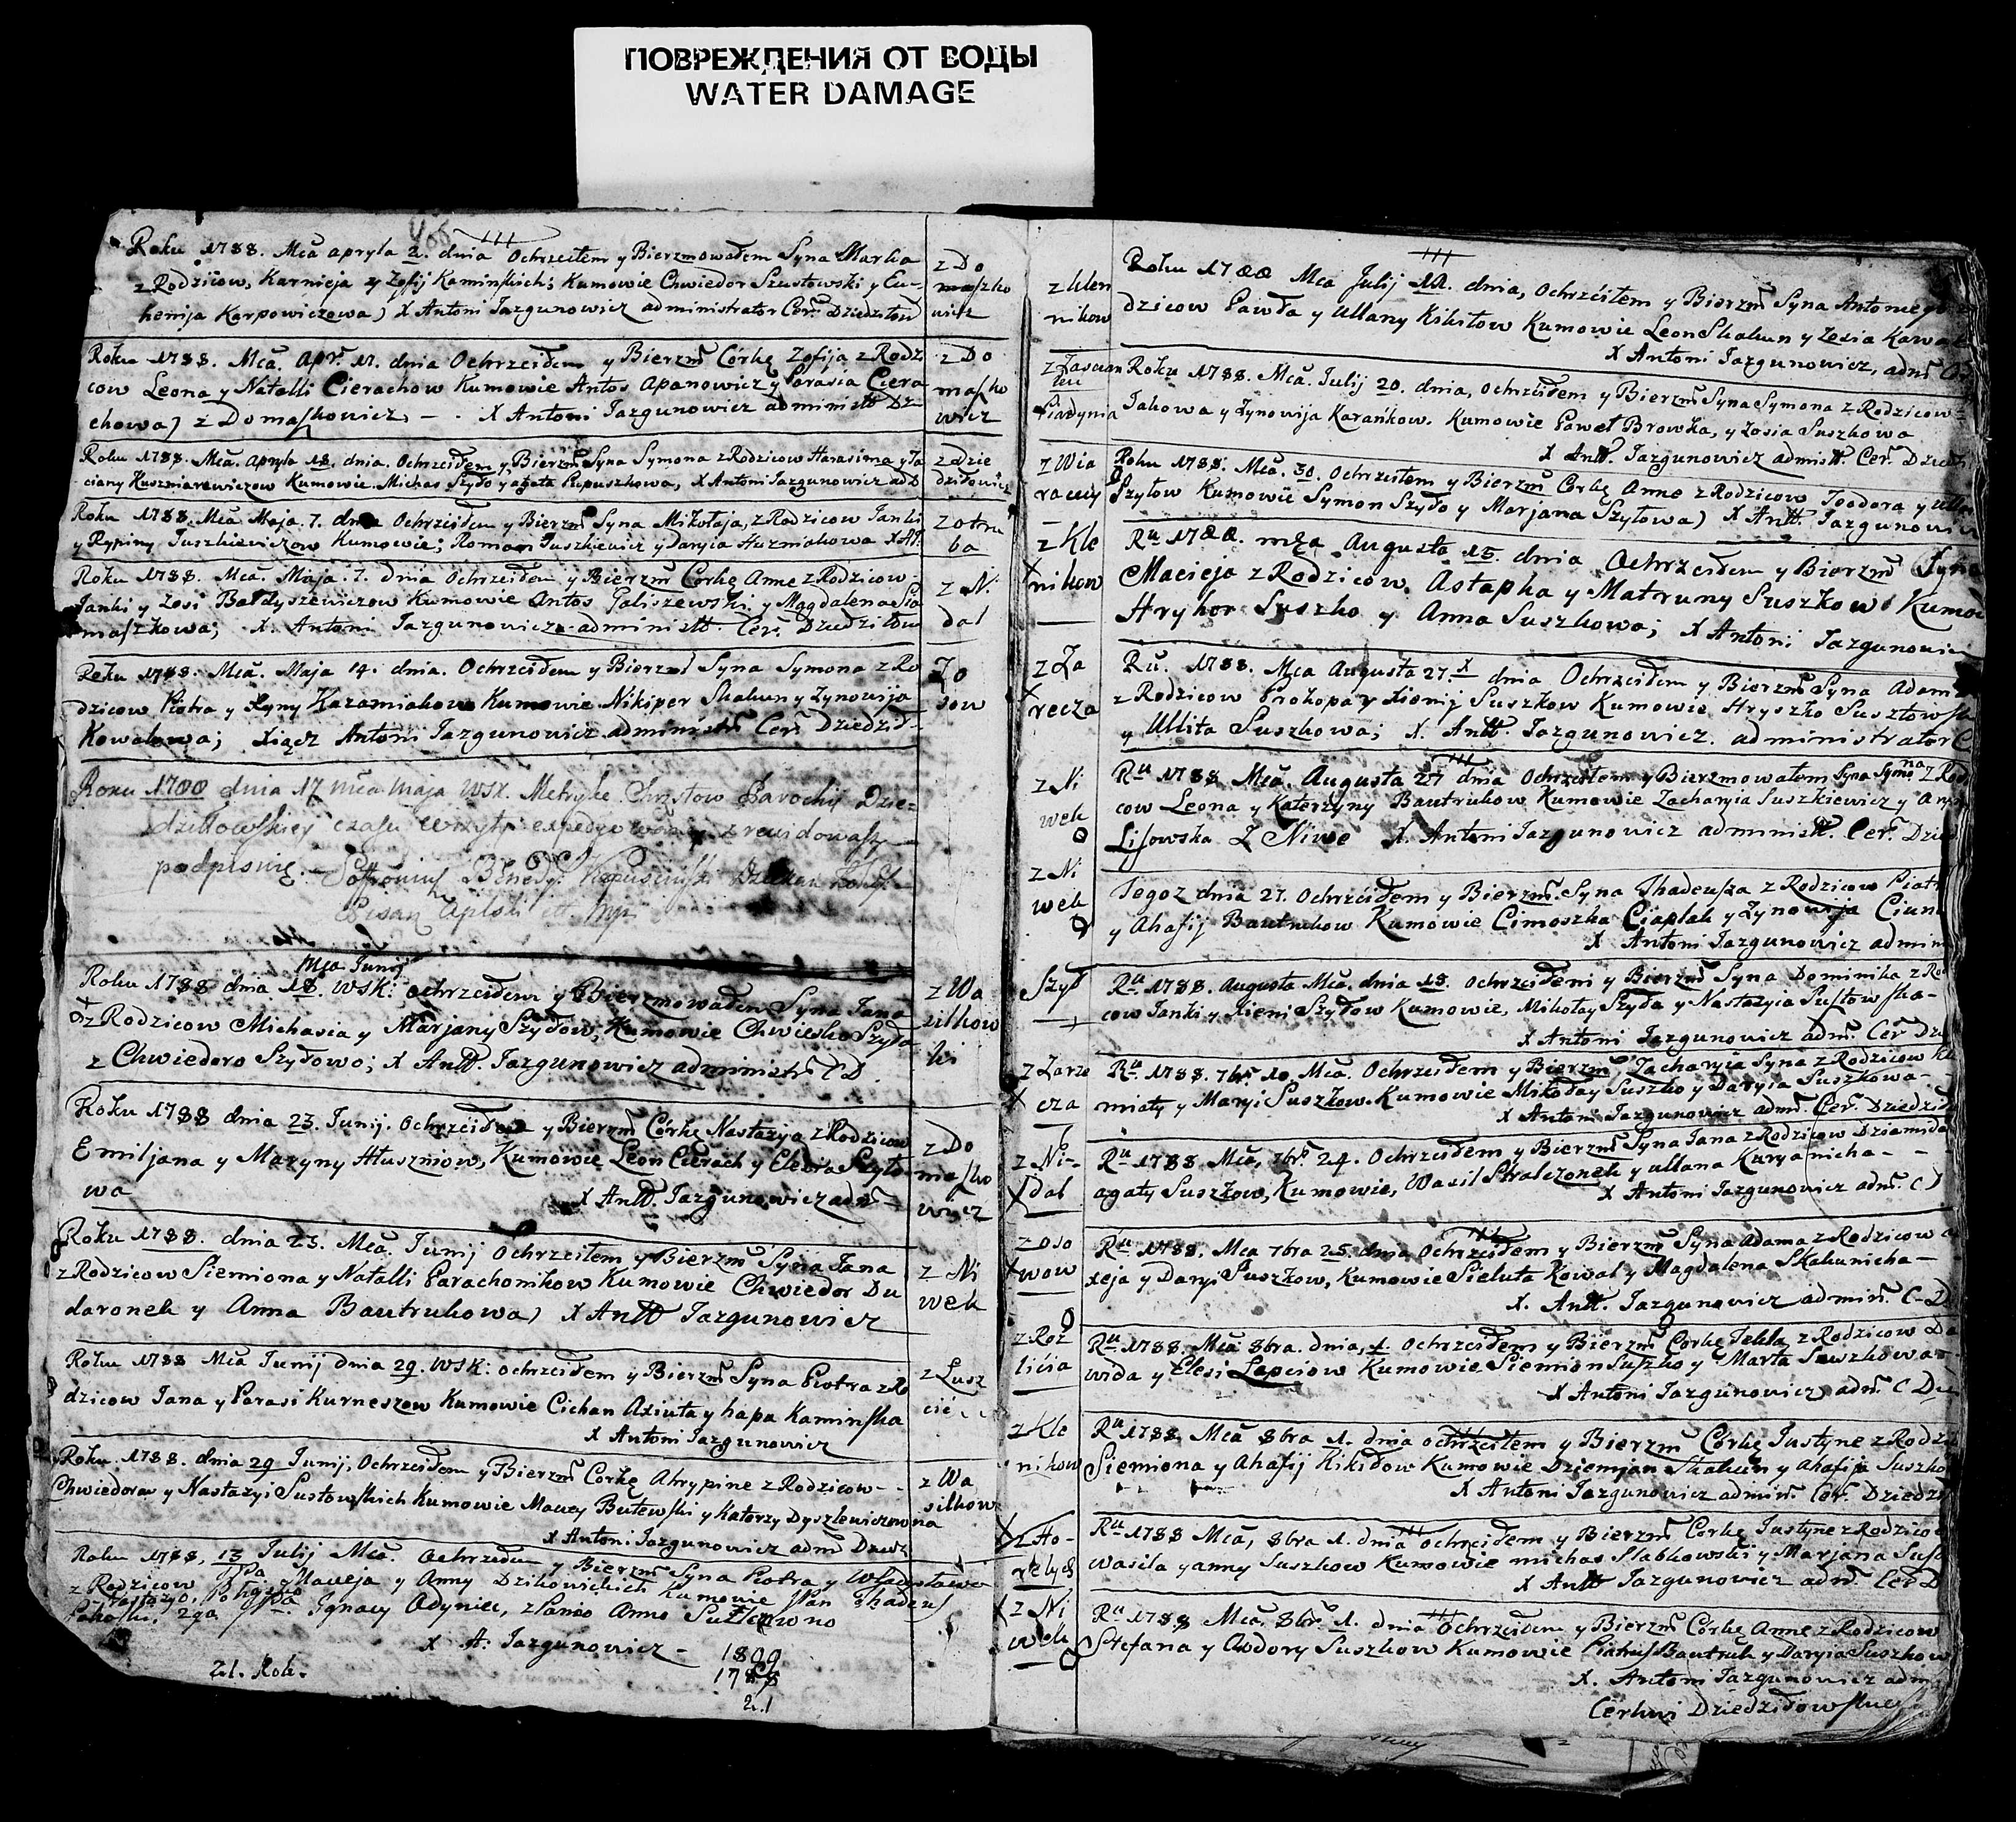 ПОВРЕЖДЕНИЯ ОТ ВОДЫ
WATER DAMAGE
Roku 1788. Mca apryla 2. dnia Ochrzciłem y Bierzmowałem Syna Marka
z Rodzicow, Karnieja y Zofij Kaminskich; Kumowie Chwiedor Szustowski y Eu-
henija Karpowiczowa) X Antoni Jazgunowicz administrator Cer. Dziedziłow
z Do
maszko
wicz
Roku 1788. Mca. Apr. 11. dnia Ochrzciłem y Bierzm Córkę Zofija z Rodz
cow Leona y Natalli Cierachow Kumowie Antos Apanowicz y Parasia Ciera
chowa) z Domaszkowicz - . X Antoni Jazgunowicz administr Dz
z Do
maszko
wicz
Roku 1788. Mca. Apryla 18. dnia. Ochrzciłem y Bierzm Syna Symona z Rodzicow Harasima y Ta
ciany Kuszniarewiczow Kumowie Michas Szyło y Agata Papuszkowa, X Antoni Jazgunowicz ad D
z dzie
dziłowicz
Roku 1788. Mca Maja. 7. dnia Ochrzciłem y Bierzm Syna Mikołaja, z Rodzicow Janki
y Rypiny Juszkiewiczow Kumowie; Roman Juszkiewicz y Daryia Huzniakowa X At.
z otru
ba
Roku 1788. Mca. Maja. 7. Dnia Ochrzciłem y Bierzm Corkę Anne z Rodzicow
Janki y Zosi Bałdyszewiczow Kumowie Antos Paliszewski y Magdalena Sia
maszkowa; X. Antoni Jazgunowicz administr. Cer. Dziedziłow
z N.
dal
Roku 1788. Mca. Maja 14. dnia. Ochrzciłem y Bierzm Syna Symona z Ro
dzicow Piotra y Łyny Karamiakow Kumowie Nikiper Skakun y Zynowija
Kowalowa; Xiądz Antoni Jazgunowicz administr Cer Dziedził-
Zo
sow
Roku 1788 dnia 17 mca Maja WSX. Metryke Chrzstow Parochij Dzie=
dziłłowskiey czasu Wizyty expedyowaney zrewidowaszy
podpisuię.
Roku 1788 dnia 18. WSK: ochrzciłem y Bierzmowałem Syna Jana
Mca Junij
z Rodzicow Michasia y Marjany Szyłow; Kumowie Chwiesko Szyła
z Chwiedoro Szyłowo; X Antt. Jazgunowicz administr C D.
z Wa
silkow
ki
Roku 1788 dnia 23. Junij. Ochrzciłem y Bierzm Córkę Nastazyia z Rodzicow
Emiljana y Maryny Hłuszniow, Kumowie Leon Cierach y Elesia Szyło
wa X Antt. Jazgunowicz adm
z Do
maszko
wicz
Roku 1788. dnia 23. Mca. Junij Ochrzciłem y Bierzm Syna Jana
z Rodzicow Siemiona y Natalli Parachonikow Kumowie Chwiedor Du
daronek y Anna Bautrukowa) X Antt Jazgunowicz
z Ni
wek
Roku 1788 Mca Junij dnia 29. WSK: ochrzciłem y Bierzm Syna Piotra z Ro
dzicow Jana y Parasi Kurneszow Kumowie Cichan Axiuta y hapa Kaminska
X Antoni Jazgunowicz
z Lusz
cic
Roku. 1788. dnia 29 Junij, Ochrzciłem y Bierzm Corkę Ahrypine z Rodzicow - -
Chwiedora y Nastazyi Sustowskich Kumowie Maciey Butewski y Katerzy Dyszlewiczowna
X Antoni Jazgunowicz adm Dziedz
z Wa
silkow
Roku 1788, 13 Julij Mca. Ochrzciłem y Bierzm Syna Piotra y Władysława
z Rodzicow Macieja y Anny Dzikowickich Kumowie Pan Thadeus
2ga Ignacy Odyniec, z Panio Anno
X A: Jazgunowicz -
21. Rok.
1809
1788
21
z klen
nikow
Roku 1788 Mca Julij 12. dnia, Ochrzciłem y Bierzm Syna Antoniego z
dzicow Pawła y Ullany Kikiłow Kumowie Leon Skakun y Zosia Kawal
X Antoni Jazgunowicz, adm Ce
z Zascian
ku
Siadynia
Roku 1788. Mca. Julij 20. dnia, Ochrzciłem y Bierzm Syna Symona z Rodzicow =
Jakowa y Zynowija Karankow. Kumowie Paweł Browka, y Zosia Suszkowa
X Antt. Jazgunowicz admistr. Cer. Dziedzi
z Wia
raciey
Roku 1788. Mca. 30. Ochrzciłem y Bierzm Corkę Anne z Rodzicow Teodora y Ulla
Szyłow Kumowie Symon Szyło y Marjana Szyłowa) X Antt. Jazgunowicz
z Kle
nikow
Ru 1788. mca Augusta 15. dnia Ochrzciłem y Bierzm Syna
Macieja z Rodzicow. Astapha y Matruny Suszkow Kumow
Hryhor Suszko y Anna Suszkowa; X Antoni Jazgunowicz
z Za
recza
Ru. 1788. Mca Augusta 27. dnia Ochrzciłem y Bierzm Syna Adama
z Rodzicow Prokopa y Xienij Suszkow Kumowie Hryszko Susztowsk
y Ullita Suszkowa; X. Antt. Jazgunowicz. administrator C
z Ni
wek
Ru 1788 Mca. Augusta 27 dnia Ochrzciłem y Bierzmowałem Syna Symona z Rod
cow Leona y Katerzyny Bautrukow Kumowie Zacharyia Suszkiewicz y Ary
Lisowska z Niwe X. Antoni Jazgunowicz administ. Cer. Dzied
z Ni
wek
Tegoz dnia 27. Ochrzciłem y Bierzm. Syna Thadeusza z Rodzicow Piotr
y Ahafij Bautrukow Kumowie Cimoszka Ciaplak y Zynowija Ciun
X Antoni Jazgunowicz admin
Szył
Ru. 1788. Augusta Mca. dnia 18. Ochrzciłem y Bierzm Syna Dominika z Ro
cow Janki y Xieni Szyłow Kumowie, Mikołay Szyła y Nastazyia Sustowska-
X Antoni Jazgunowicz adm. Cer Dz
z Zarze
cza
Ru. 1788. 7br. 10. Mca. Ochrzciłem y Bierzm Zacharyia Syna z Rodzicow Kli
miaty y Maryi Suszkow. Kumowie Mikołay Suszko y Daryia Suszkowa-
X Antoni Jazgunowicz adm. Cer. Dziedził
z Ni-
dal
Ru 1788 Mca, 7br. 24. Ochrzciłem y Bierzm Syna Jana z Rodzicow Dziamida
agaty Suszkow, Kumowie, Wasil Stralczonek y ullana Kuryanicha - -
X Antoni Jazgunowicz adm. C D
z oso
wow
Ru 1788. Mca 7bra 25. dnia Ochrzciłem y Bierzm Syna adama z Rodzicow a
xeja y Daryi Suszkow, Kumowie Sieluta Kowal y Magdalena Skakunicha-
X. Antt. Jazgunowicz admin. C-D
z Roz
licia
Ru 1788. Mca 8bra. dnia, 1. Ochrzciłem y Bierzm Corkę Tekla z Rodzicow Da
wida y Elesi Lapciow Kumowie Siemion Suszko y Marta Suszkowa
X Antoni Jazgunowicz adm. C Dz
z Kle
nikow
Ru 1788. Mca 8bra 1. dnia ochrzciłem y Bierzm Córkę Justyne z Rodzi
Siemiona y Ahafij Kikiłow Kumowie Dziemjan Skakun y Ahafija Suszko
X Antoni Jazgunowicz admin. Cer. Dziedz
z Ho-
relych
Ru 1788 Mca, 8bra 1. dnia ochrzciłem y Bierzm Córkę Justyne z Rodzico
wasila y anny Suszkow Kumowie michas Slabkowski y Marjana Sus
X Antt Jazgunowicz adm. Cer D
z Ni
wek
Ru 1788 Mca, 8br. 1. dnia Ochrzciłem y Bierzm Córkę Anne z Rodzicow
Stefana y Awdory Suszkow Kumowie Piatrus Bautruk y Daryia Suszkow
X. Antoni Jazgunowicz adm
Cerkwi Dziedziłowskiey